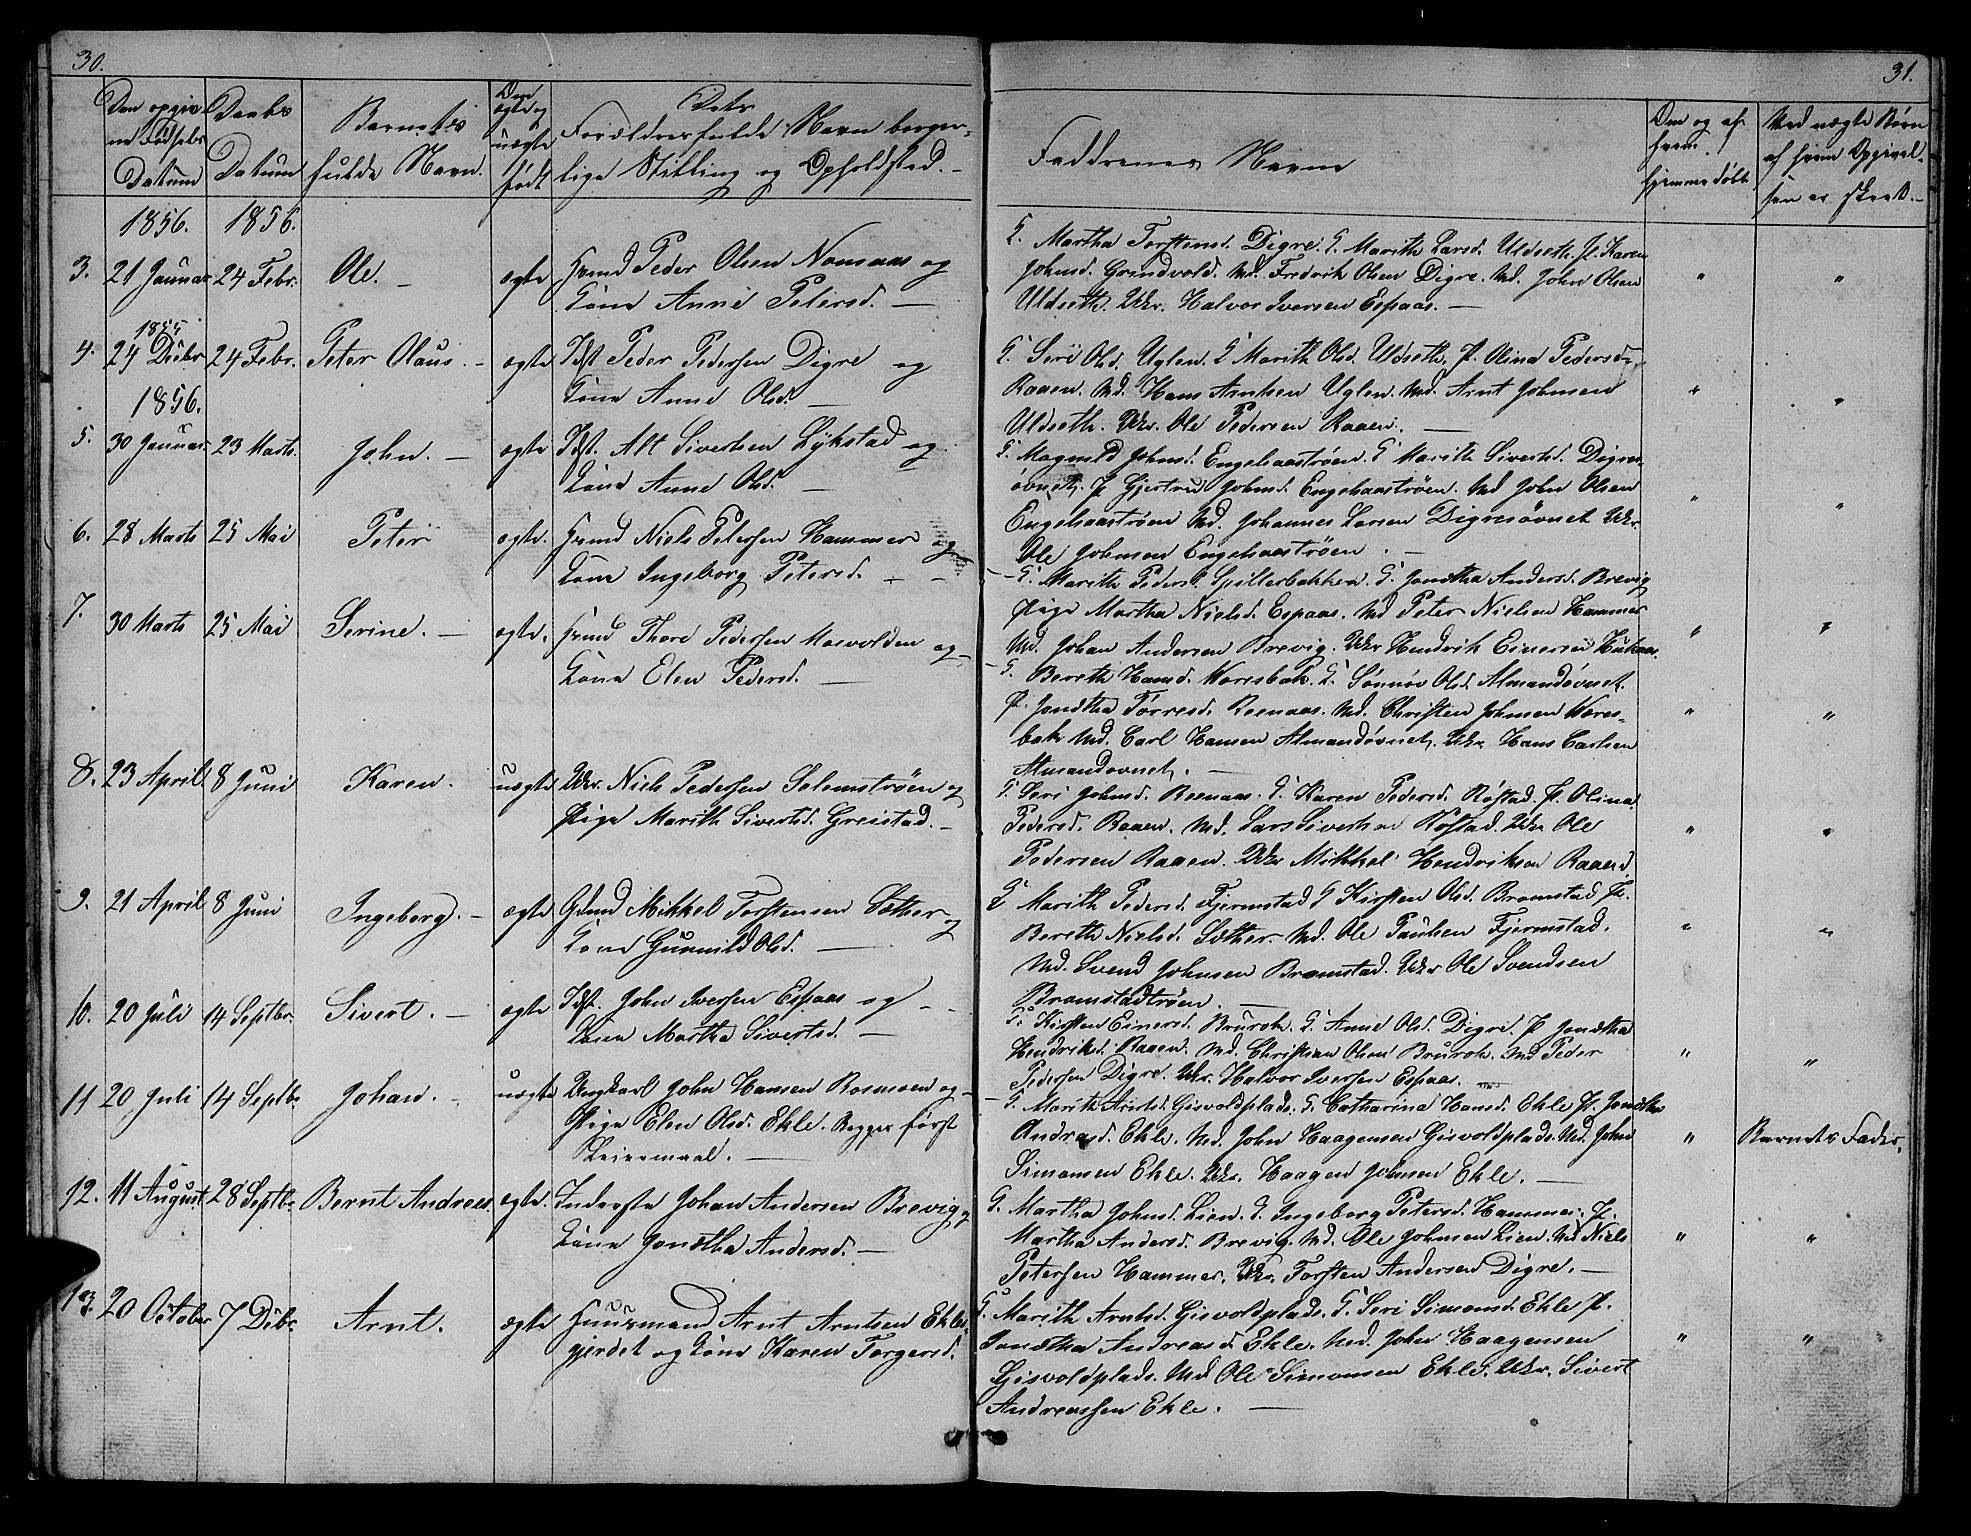 30.
Den opgiv-
ne Fødsels
Datum
Daabs
Datum
Barnets
fulde Navn.
Om
ægte og
uægte
født
Dets
Forældres fulde Navn borger-
lige Stilling og Opholdsted. -
1856. 1856.
3. 21 Januar 24 Febr. Ole. - ægte Grmd Peder Olsen Nomaas og
Kone Anne Petersd. -
1855
4. 24 Decbr 24 Febr. Peter Olaus. - ægte Idst Peder Pedersen Digre og
Kone Anne Olsd. -
1856.
5. 30 Januar 23 Marts. John. - ægte Idst. Alt Sivertsen Lykstad og
Kone Anne Olsd. -
6. 28 Marts 25 Mai Peter ægte. Grmd Niels Petersen Hammer og
Kone Ingeborg Petersd. -
7. 30 Marts 25 Mai Serine. - ægte. Grmd Thore Pedersen Moevolden og
Kone Elen Pedersd. -
8. 23 April 8 Juni Karen. uægte Ukr. Niels Pedersen Selemstrøen og
Pige Marith Sivertsd. Greistad. -
9. 21 April 8 Juni Ingeborg. - ægte Grmd Mikkel Torstensen Sæther og
Kone Gunnild Olsd. -
10. 20 Juli 14 Septbr. Sivert. - ægte Idst. John Iversen Espaas og -
Kone Martha Sivertsd. -
11 20 Juli 14 Septb. Johan. - uægte Ungkarl John Hansen Rosmoen og -
Pige Elen Olsd. Ekle. Begges først
Leiermaal. -
12. 11 August 28 Septb. Bernt Andreas. ægte. Inderste Johan Andersen Brevig og
Kone Jonetha Andersd. -
13. 20 October 7 Debr. Arnt. ægte Huusmand Arnt Arntsen Ekle-
gjerdet og Kone Karen Torgersd.
31.
Faddrenes Navne
Om og af
hvem
hjemmedøbt
Ved uægte Børn
af hvem Opgivel-
sen er skeet. -
G. Martha Torstensd. Digre. G. Marith Larsd. Uldseth. P. Karen
Johnsd. Grindvold. Md. Fredrik Olsen Digre. Md. John Olsen
Uldseth. Ukr. Halvor Iversen Espaas. -
G. Seri Olsd. Uglen. G Marith Olsd. Uldseth. P. Olina Pedersd.
Raaen. Md. Hans Arntsen Uglen. Md. Arnt Johnsen
Uldseth. Ukr. Ole Pedersen Raaen. -
G. Magnild Johnsd. Engelsaastrøen. G Marith Sivertsd. Digres-
øvnet. P Gjertru Johnsd. Engelsaastrøen. Md John Olsen
Engelsaastrøen Md. Johannes Larsen Digresøvnet Ukr.
Ole Johnsen Engelsaastrøen. -
G. Marith Pedersd. Spillerbakken. G. Jonetha Andersd. Brevig
Pige Martha Nielsd. Espaas. Md Peter Nielsen Hammer
Md. Johan Andersen Brevig. Ukr Hendrik Einersen Kukaas.
G. Bereth Hansd. Woresbak. G. Sønnøv Olsd. Almandøvnet.
P. Jonetha Torresd. Reenaas. Md. Christen Johnsen Wores-
bak Md. Carl Hansen Almandøvnet. Ukr Hans Carlsen
Almandøvnet. -
G. Seri Johnsd. Reenaas. G. Karen Pedersd. Røstad. P. Olina
Pedersd. Raaen. Md. Lars Sivertsen Røstad. Ukr Ole
Pedersen Raaen. Ukr Mikkel Hendriksen Raaen.
G Marith Pedersd. Fjermstad G Kirsten Olsd. Bromstad P.
Bereth Nielsd. Sæther. Md. Ole Paulsen Fjermstad.
Md. Svend Johnsen Bromstad. Ukr Ole Svendsen
Bromstadtrøen. -
G. Kirsten Einersd. Brurok. G. Anne Olsd. Digre. P Jonetha
Hendriksd. Raaen. Md. Christian Olsen Brurok. Md Peder
Pedersen Digre. Ukr. Halvor Iversen Espaas. -
G. Marith Arntsd. Gisvoldplads. G. Catharina Hansd. Ekle P. Jonetha
Andreasd. Ekle. Md. John Haagensen Gisvoldplads. Md. John
Simonsen Ekle. Ukr. Haagen Johnsen Ekle. - " Barnets Fader.
G. Martha Johnsd. Lien. G. Ingeborg Petersd. Hammer. P.
Martha Andersd. Brevig. Md. Ole Johnsen Lien. Md Niels
Petersen Hammer. Ukr. Torsten Andersen Digre. -
G. Marith Arntsd. Gisvoldplads. G. Seri Simonsd. Ekle P.
Jonetha Andreasd Ekle. Md. John Haagensen
Gisvoldplads. Md Ole Simonsen Ekle. Ukr. Sivert
Andreassen Ekle. -